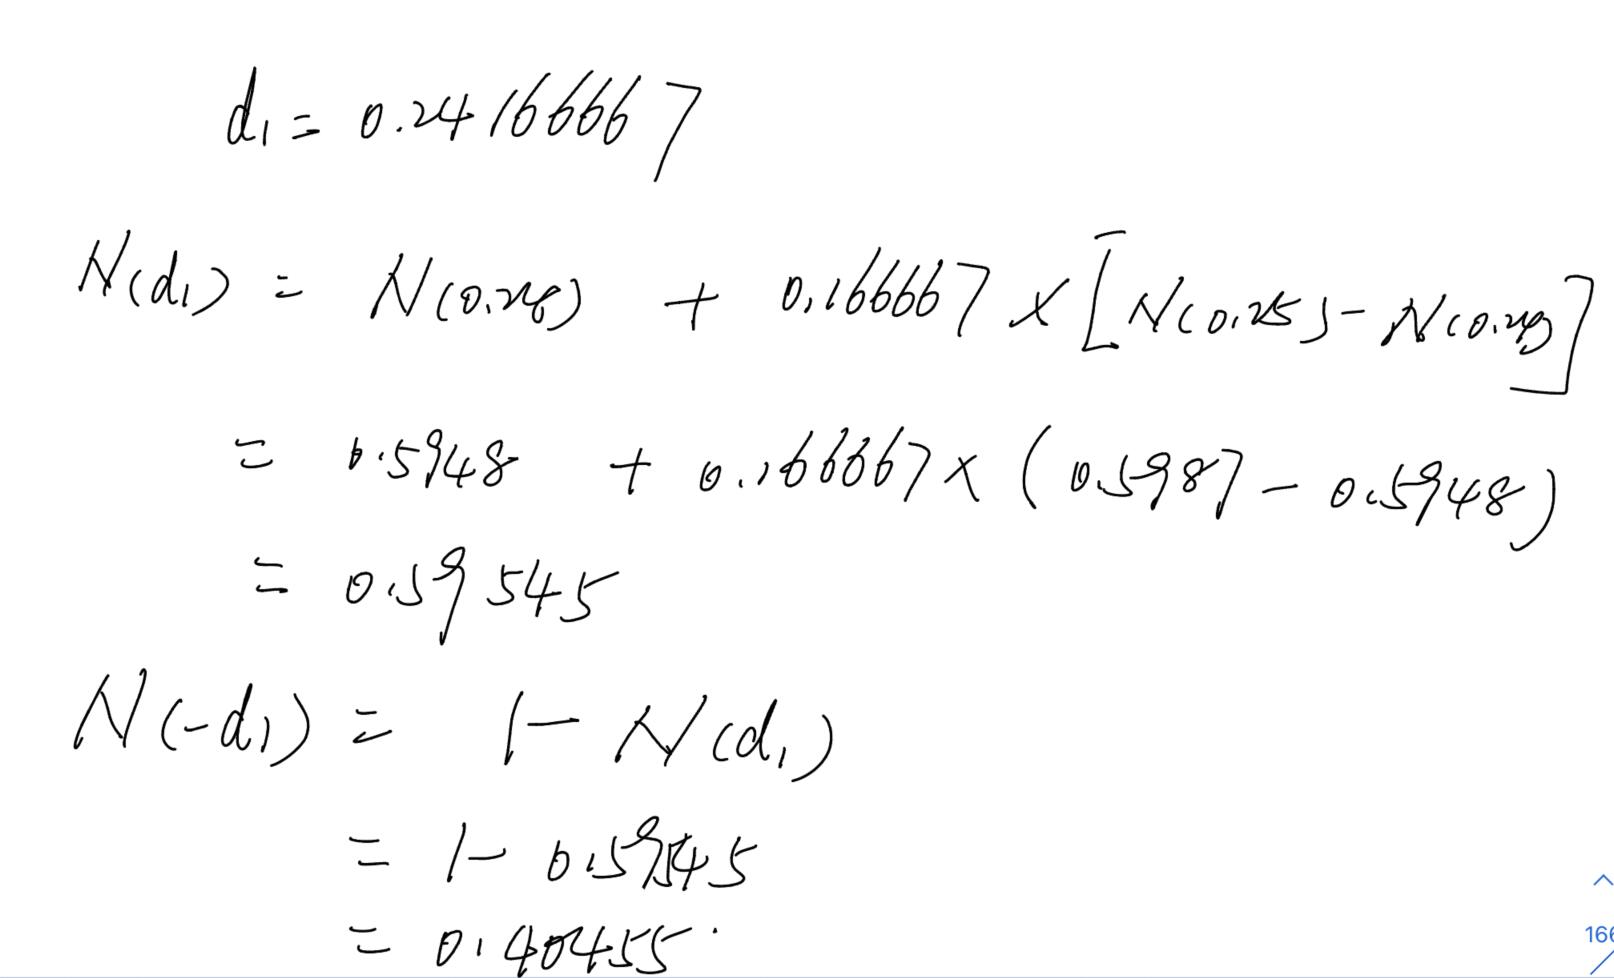 d₁ = 0.24166667
N(d₁) = N(0.24) + 0.166667 × [N(0.25) - N(0.24)]
= 0.5948 + 0.166667 × (0.5987 - 0.5948)
= 0.59545
N(-d₁) = 1 - N(d₁)
= 1 - 0.59545
= 0.40455.
166